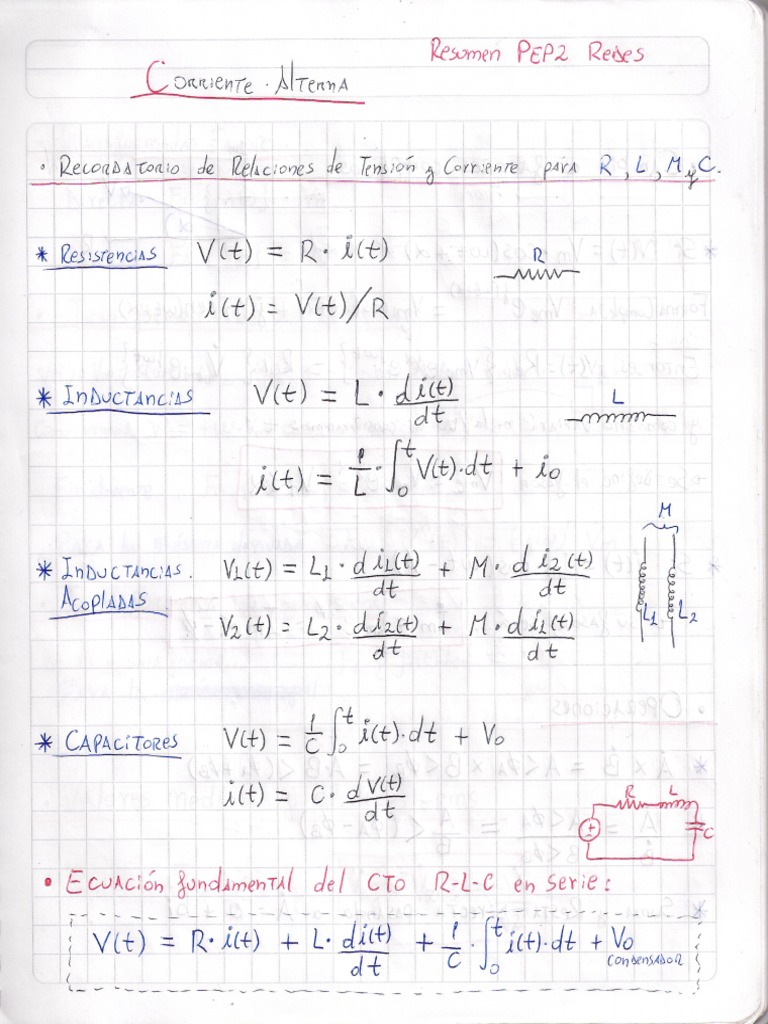 Resumen PEP2 Redes
Corriente Alterna
• Recordatorio de Relaciones de Tensión y Corriente para R, L, M y C.
* Resistencias V(t) = R · i(t)
R
i(t) = V(t)/R
* Inductancias V(t) = L · di(t)/dt
L
i(t) = 1/L · ∫₀ᵗ V(t)·dt + i₀
M
* Inductancias V₁(t) = L₁ · di₁(t)/dt + M · di₂(t)/dt
Acopladas V₂(t) = L₂ · di₂(t)/dt + M · di₁(t)/dt
L₁ L₂
* Capacitores V(t) = 1/C ∫₀ᵗ i(t)·dt + V₀
i(t) = C · dV(t)/dt
R L
C
• Ecuación fundamental del CTO R-L-C en serie:
V(t) = R·i(t) + L·di(t)/dt + 1/C · ∫₀ᵗ i(t)·dt + V₀
condensador